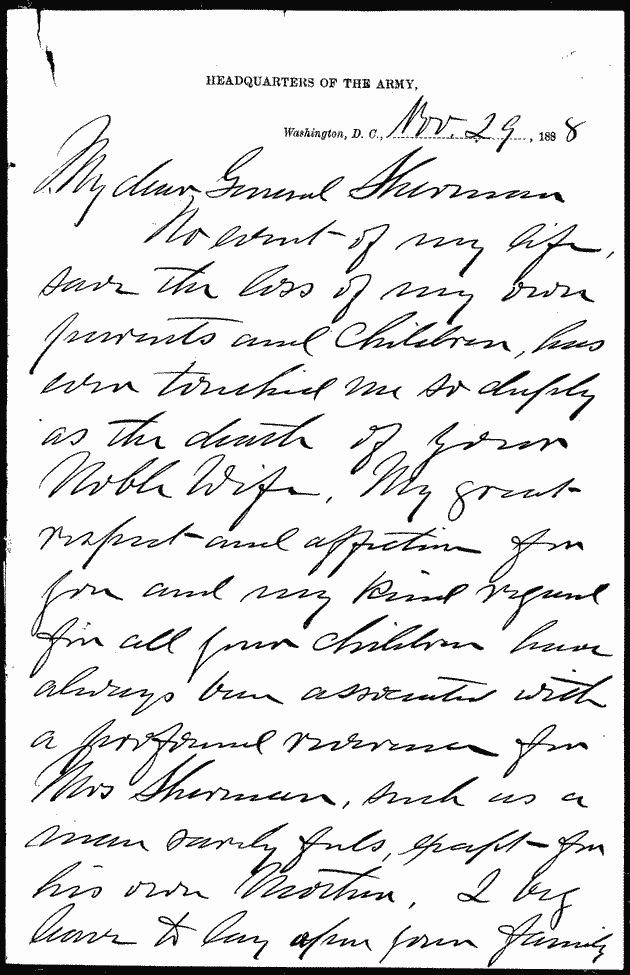 HEADQUARTERS OF THE ARMY,
Washington, D. C., Nov. 29, 1888
My dear General Sherman
No event of my life,
save the loss of my own
parents and children, has
ever touched me so deeply
as the death of your
Noble Wife. My great
respect and affection for
you and my kind regard
for all your children have
always been associated with
a profound reverence for
Mrs Sherman, such as a
man rarely feels, except for
his own Mother. I beg
leave to lay upon your family